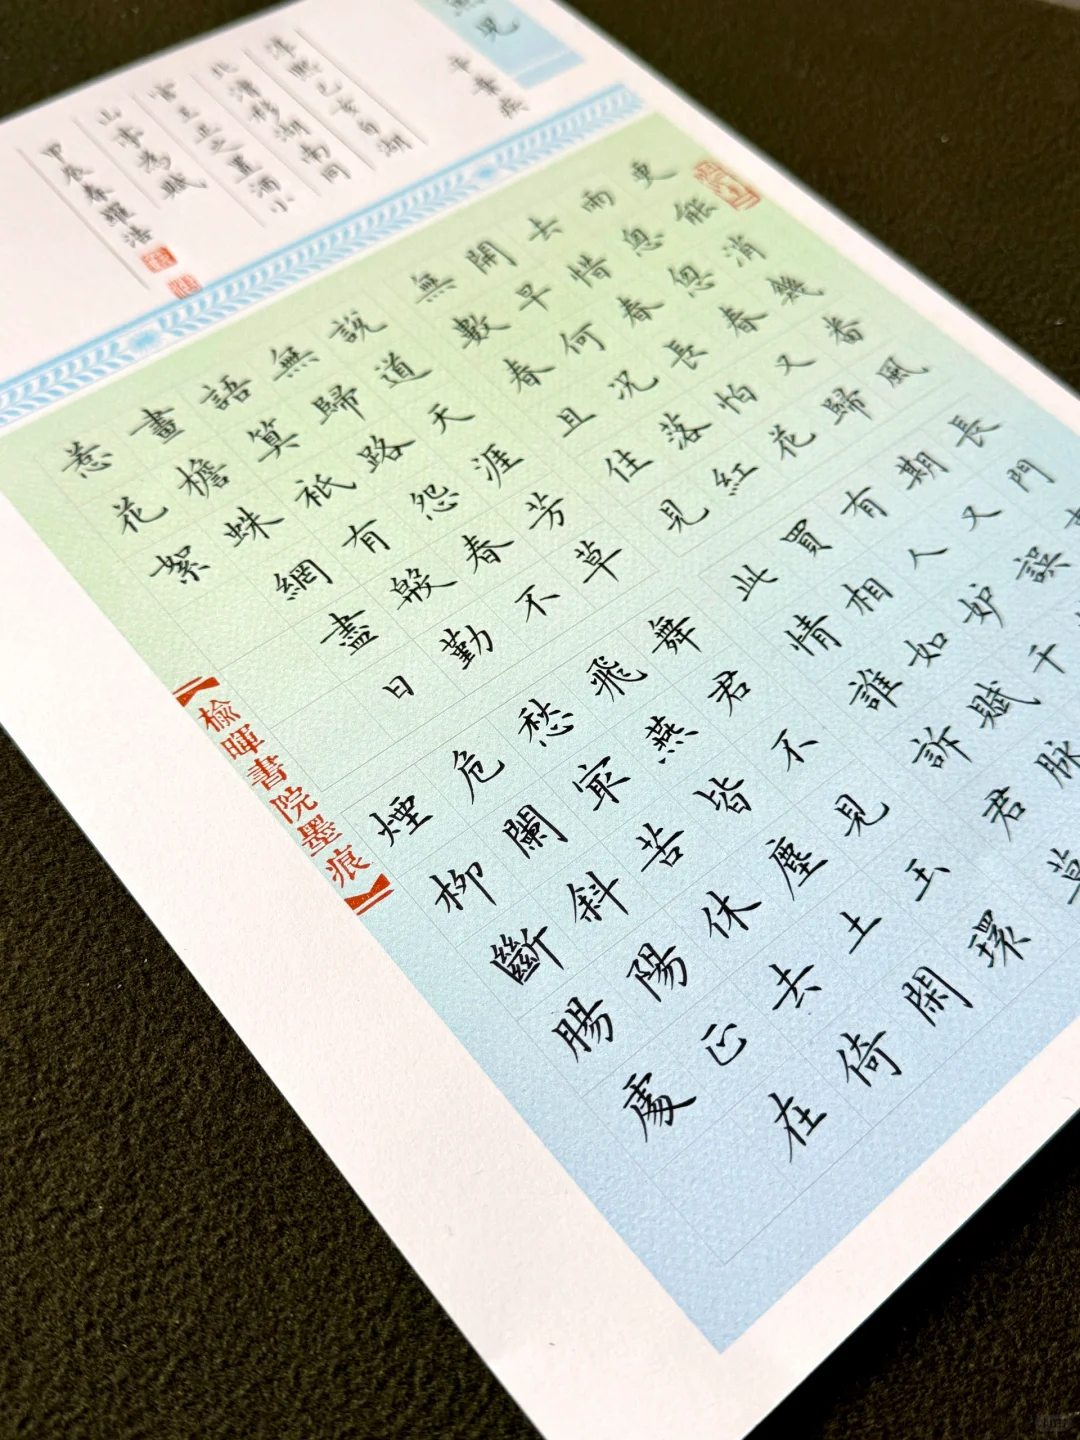 魚兒
辛棄疾
更能消幾番風
雨怱怱春又歸
去惜春長怕花
開早何況落紅
無數春且住見
說道天涯芳草
無歸路怨春不
語算衹有殷勤
畫檐蛛網盡日
惹花絮
長門事
期又誤
有人妒千
買相如賦脉
此情誰訴君
舞君不見玉環
飛燕皆塵土閑
愁冣苦休去倚
危闌斜陽正在
煙柳斷腸處
淳熙己亥自湖
北漕移湖南同
官王正之置酒小
山亭為賦
甲辰春耀浩
【榆暉書院墨痕】